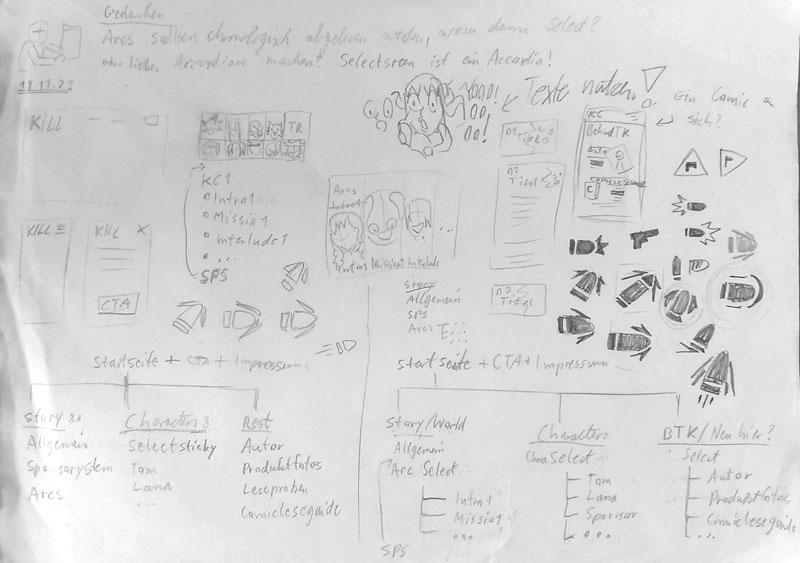 Gedanken
Arcs sollten chronologisch abgelesen werden, wozu dann Select?
oder lieber Accordions machen? Selectscreen ist ein Accordio!
18.11.23
KILL
TR
KC1
Intro1
Mission1
Interlude1
...
SPS
KILL
KILL X
CTA
YOOO!
OO!
OO!
Texte nutzen!
Ein Comic an
sich?
Titel
Titel
Titel
KC
BehindTK
Comicleseguide
C
Arcs
Intro1
Intro1 Mission1 Interlude
...
Story
Allgemein
SPS
Arcs
Startseite + CTA + Impressum
Story
Allgemein
Sponsorystem
Arcs
Characters
Selectsticky
Tom
Lana
...
Rest
Autor
Produktfotos
Leseproben
Comicleseguide
Startseite + CTA + Impressum
Story/World
Allgemein
Arc Select
Intro1
Mission1
...
SPS
Characters
CharaSelect
Tom
Lana
Sponsor
...
BTK/Neu hier?
Select
Autor
Produktfotos
Comicleseguide
...